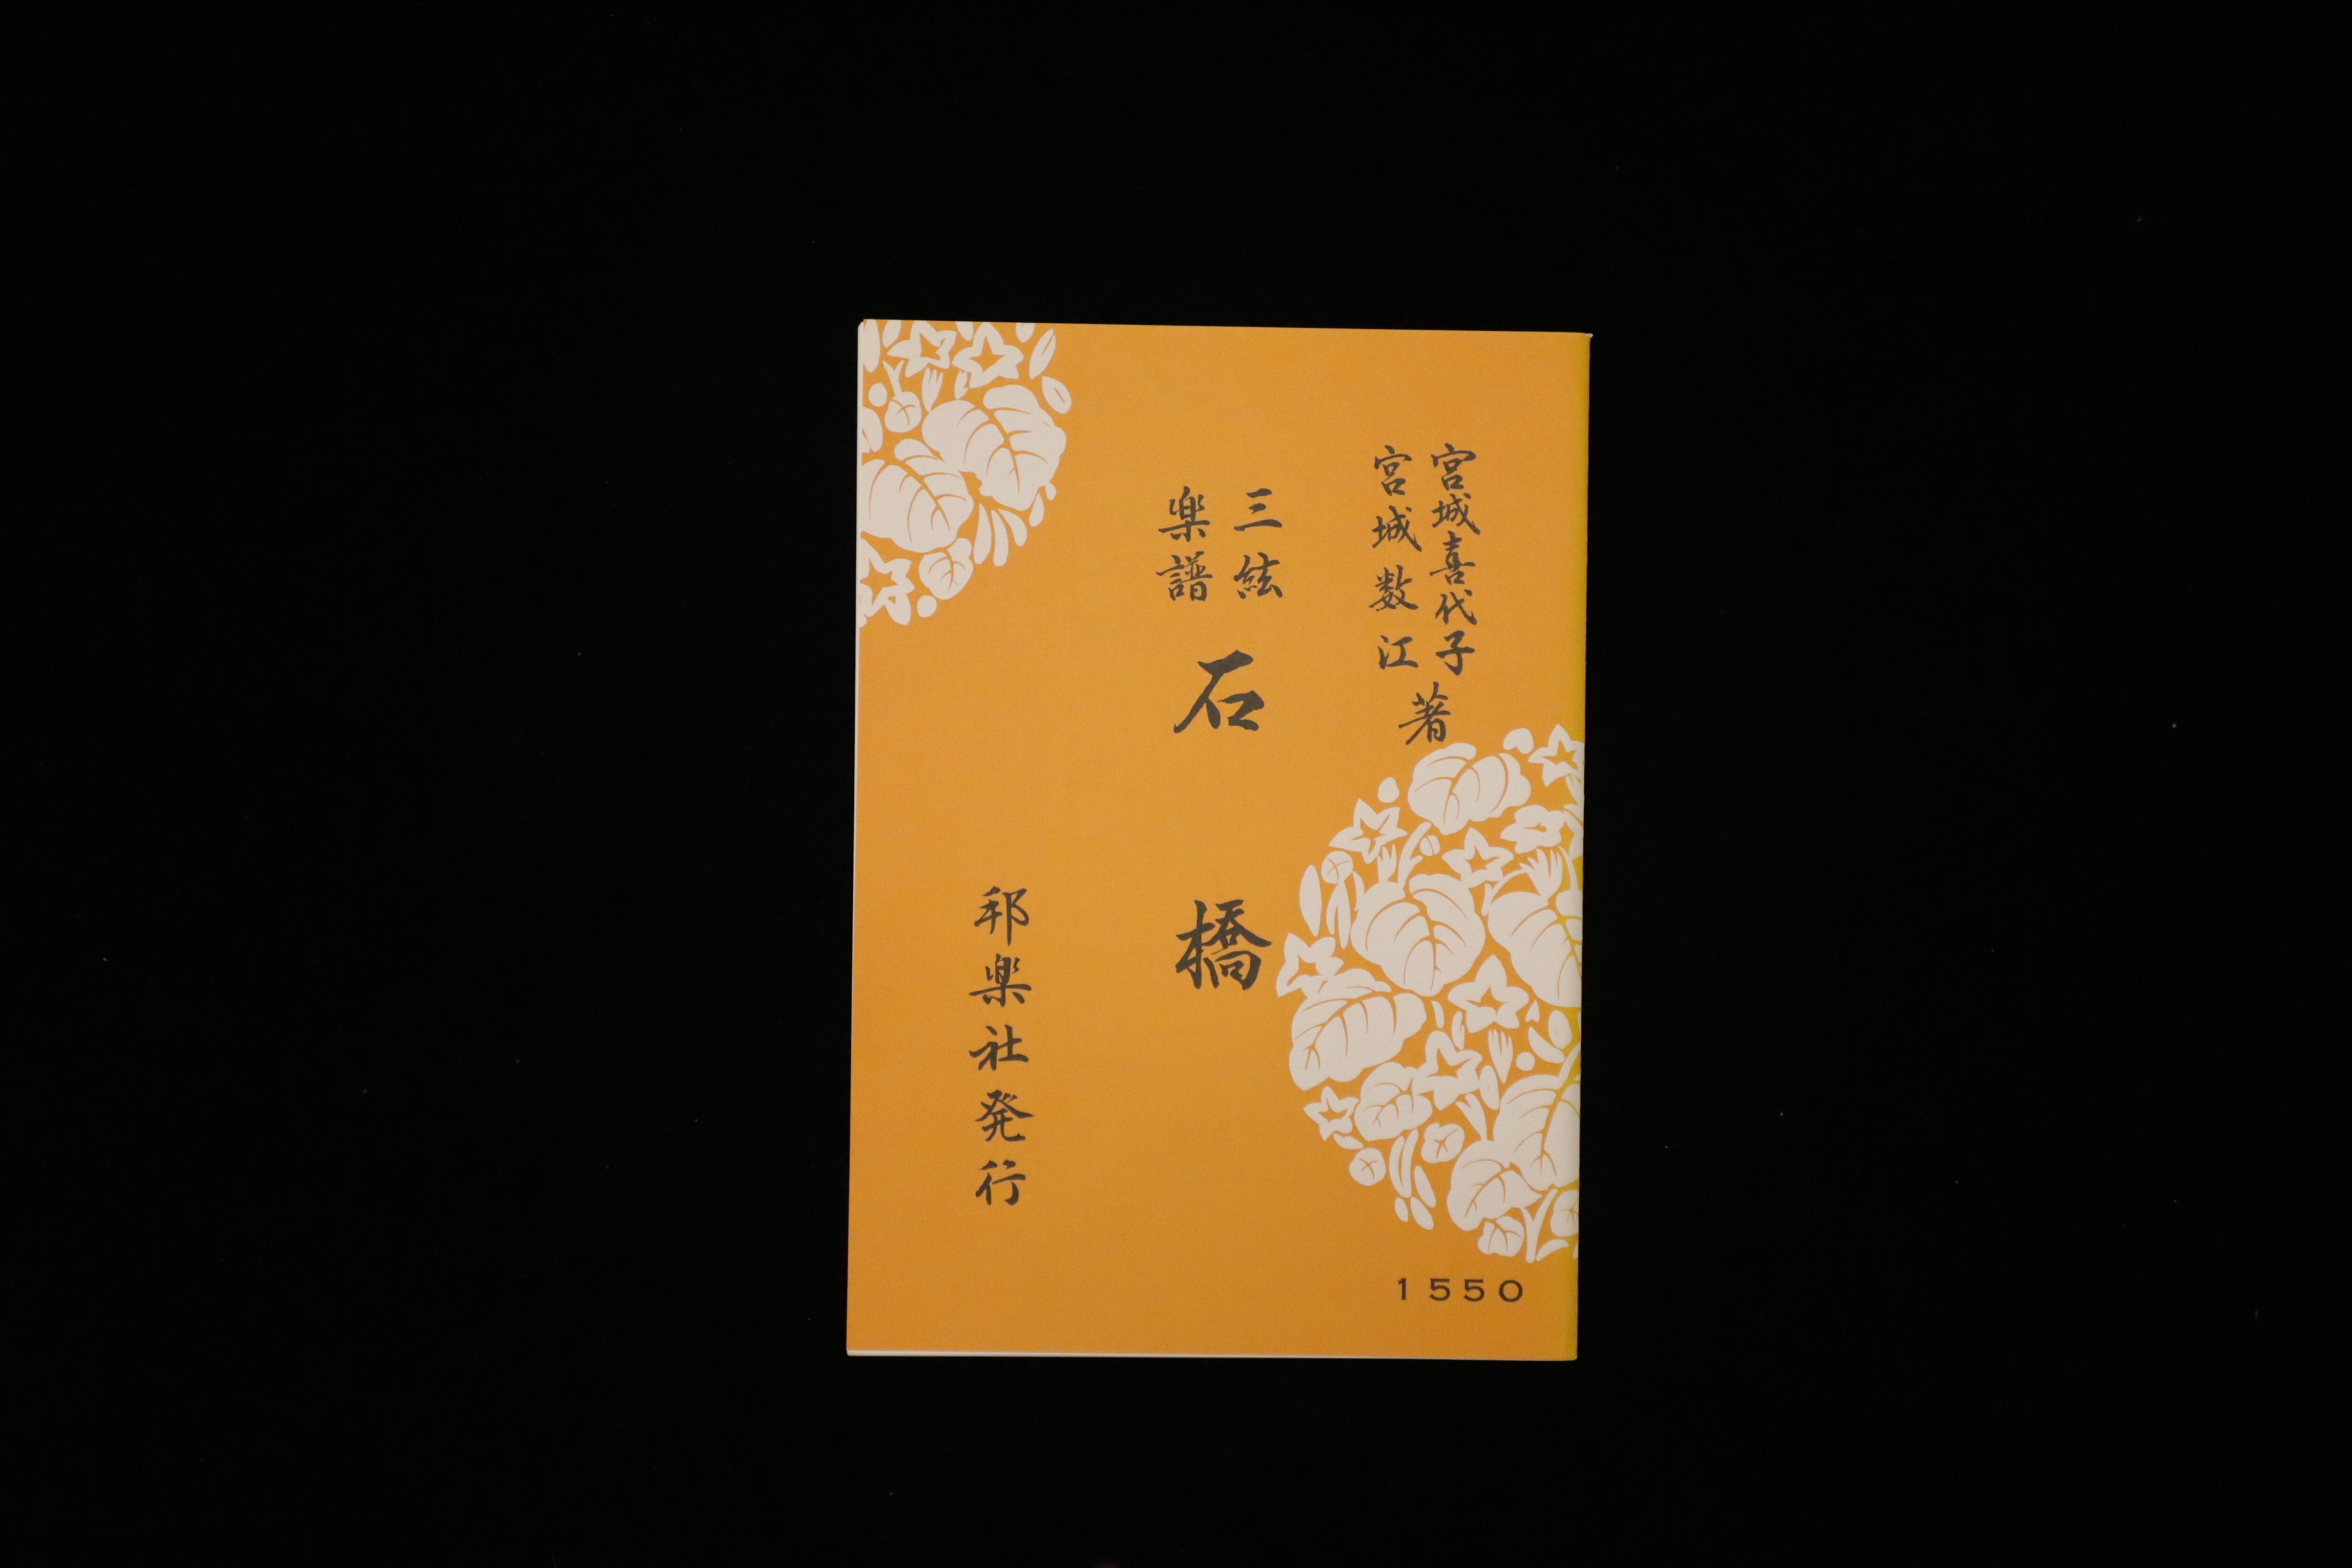 宮城喜代子
宮城数江
著
三絃
楽譜
石橋
邦楽社発行
1550